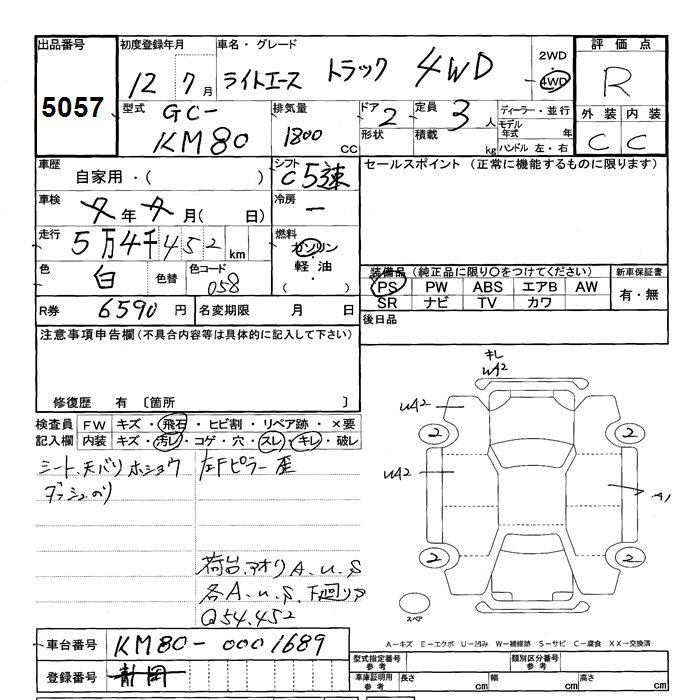 出品番号 初度登録年月 車名・グレード 2WD 評価点
5057 12 7月 ライトエース トラック 4WD 4WD R
型式 GC- 排気量 ドア 定員 ディーラー・並行 外装 内装
KM80 1800 CC 2 3 人 モデル年式 年 C C
形状 積載 kg ハンドル 左・右
車歴 自家用・( ) シフト C5速 セールスポイント (正常に機能するものに限ります)
車検 7年7月( 日) 冷房 ー
走行 5万4千452 km 燃料 ガソリン
軽油
( )
色 白 色替 色コード 058 装備品 (純正品に限り○をつけてください) 新車保証書
PS PW ABS エアB AW 有・無
SR ナビ TV カワ
R券 6590 円 名変期限 月 日 後日品
注意事項申告欄 (不具合内容等は具体的に記入して下さい)
修復歴 有 〔箇所 〕
検査員 FW キズ・飛石・ヒビ割・リペア跡・×要
記入欄 内装 キズ・汚レ・コゲ・穴・スレ・キレ・破レ
シート、天バリ ホショウ 左Fピラー歪
ダッシュのり
荷台、アオリ A、U、S
各A、U、S、下廻りサ
Q54,452
キレ
UA2
UA2
2 2
UA2 A1
2 2
スペア
車台番号 KM80-0001689
登録番号 静岡
A-キズ E-エクボ U-凹み W-補修跡 S-サビ C-腐食 XX-交換済
型式指定番号 参考 類別区分番号 参考
車庫証明用 参考 長さ cm 幅 cm 高さ cm